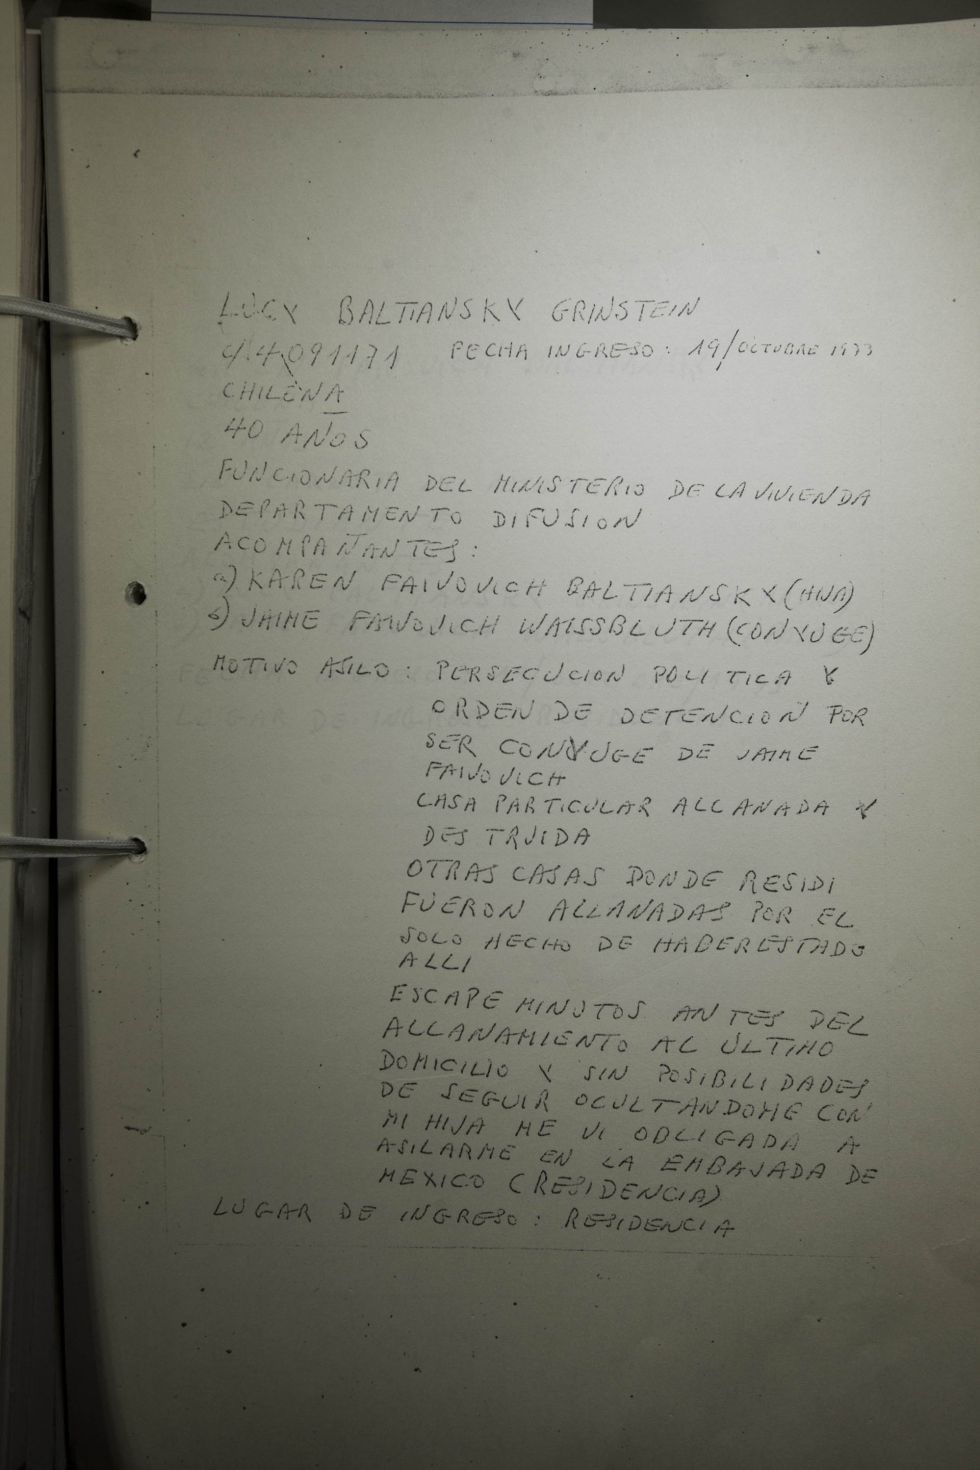 LUCY BALTIANSKY GRINSTEIN
C/4091171 FECHA INGRESO: 19/OCTUBRE 1973
CHILENA
40 AÑOS
FUNCIONARIA DEL MINISTERIO DE LA VIVIENDA
DEPARTAMENTO DIFUSION
ACOMPAÑANTES:
a) KAREN FAIVOVICH BALTIANSKY (HIJA)
b) JAIME FAIVOVICH WAISSBLUTH (CONYUGE)
MOTIVO ASILO: PERSECUCION POLITICA Y
ORDEN DE DETENCION POR
SER CONYUGE DE JAIME
FAIVOVICH
CASA PARTICULAR ALLANADA Y
DESTRUIDA
OTRAS CASAS DONDE RESIDI
FUERON ALLANADAS POR EL
SOLO HECHO DE HABER ESTADO
ALLI
ESCAPE MINUTOS ANTES DEL
ALLANAMIENTO AL ULTIMO
DOMICILIO Y SIN POSIBILIDADES
DE SEGUIR OCULTANDOME CON
MI HIJA ME VI OBLIGADA A
ASILARME EN LA EMBAJADA DE
MEXICO (RESIDENCIA)
LUGAR DE INGRESO: RESIDENCIA